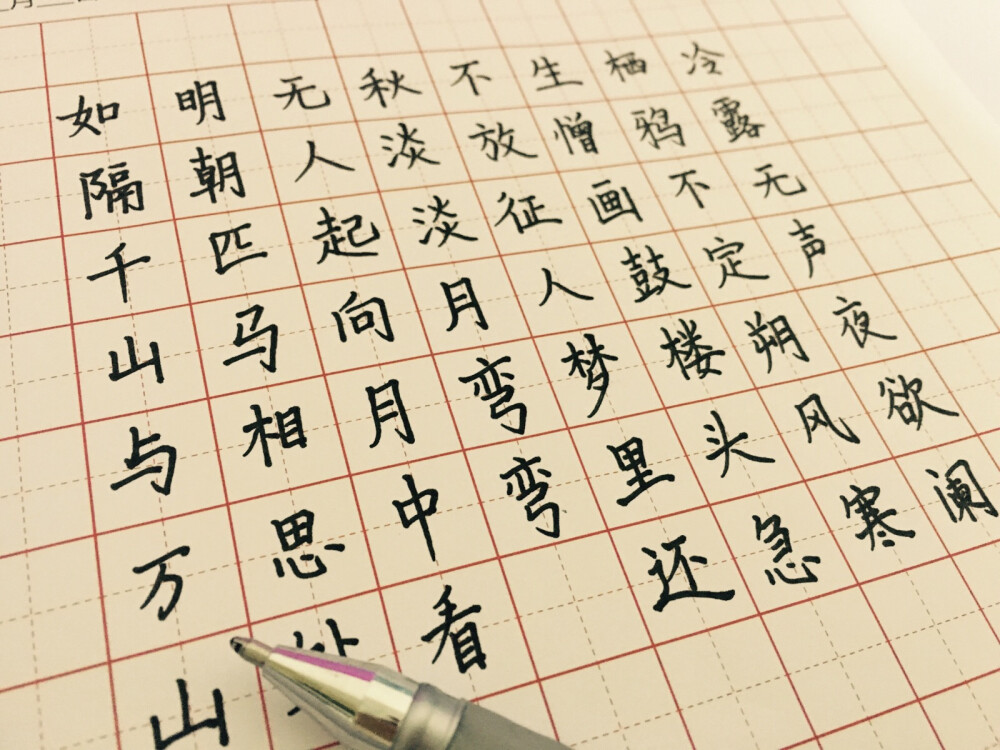 月
冷露无声夜欲阑
栖鸦不定朔风寒
生憎画鼓楼头急
不放征人梦里还
秋淡淡月弯弯
无人起向月中看
明朝匹马相思处
如隔千山与万山